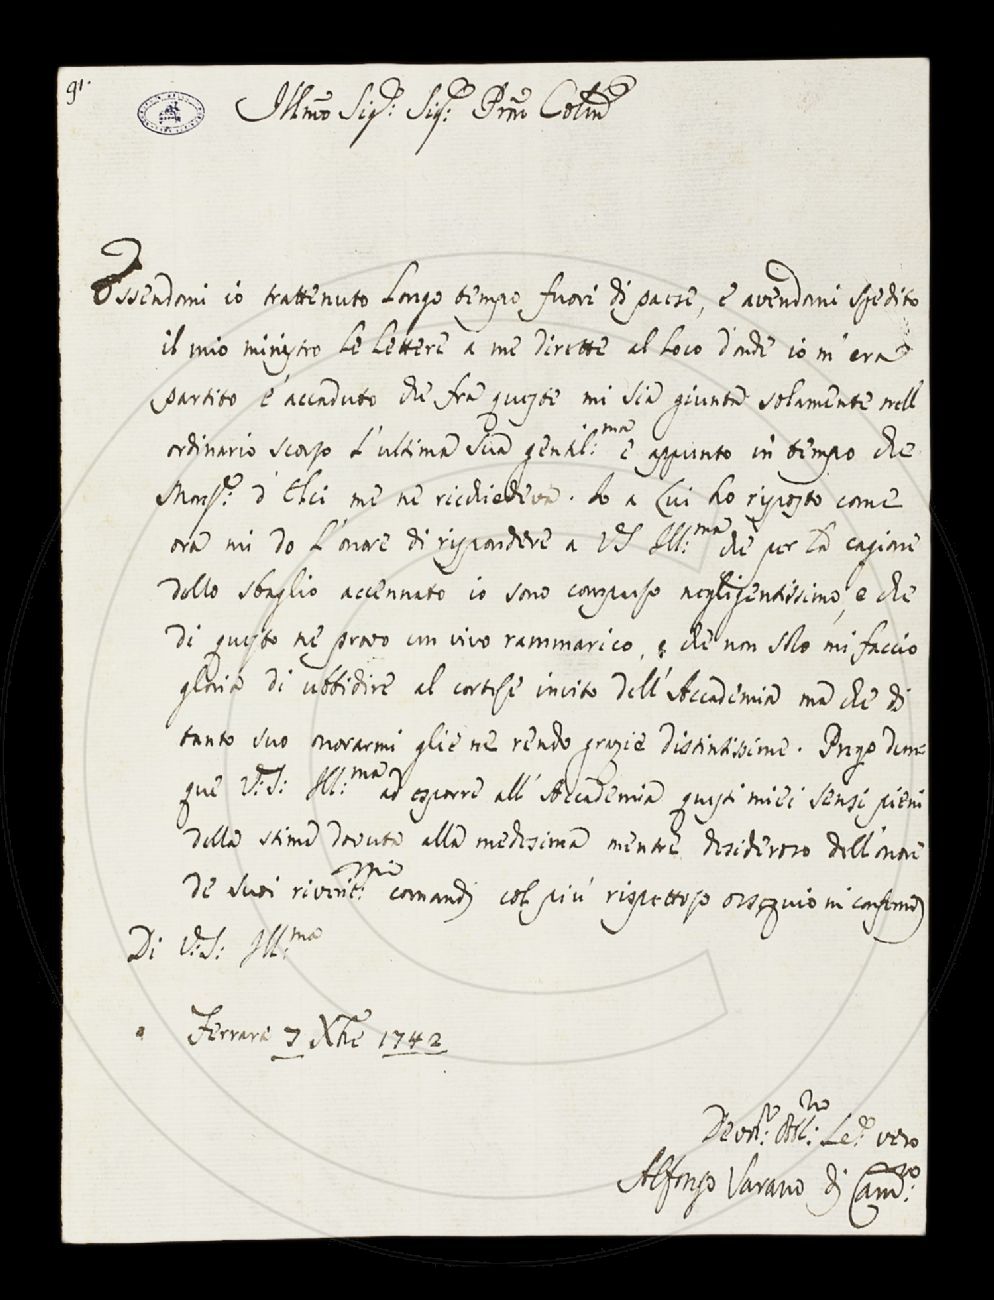 91.
Illmo Sigr: Sigr: Prne Colmo
Essendomi io trattenuto Longo tempo fuori di paese, e avendomi spedito
il mio ministro le Lettere a me dirette al Loco d'onde io m'era
partito è accaduto che fra queste mi sia giunta solamente nell
ordinario scorso L'ultima sua gentil:ma e appunto in tempo che
Monsr: d'Elci me ne richiedeva. Io a Lui ho risposto come
ora mi do L'onore di rispondere a VS Ill:ma che per la cagione
dello sbaglio accennato io sono comparso negligentissimo, e che
di questo ne provo un vivo rammarico, e che non solo mi faccio
gloria di ubbidire al cortese invito dell'Accademia ma che di
tanto suo onorarmi glie ne rendo grazie distintissime. Prego dun
que V:S: Ill:ma ad esporre all'Accademia questi miei sensi pieni
della stima dovuta alla medesima mentre desideroso dell'onore
de suoi riverit:mi comandi col più rispettoso ossequio mi confermo
Di V:S: Ill:ma
Ferrara 7 Xbre 1742
Devmo: Obl:mo Sere: vero
Alfonso Varano di Camno: